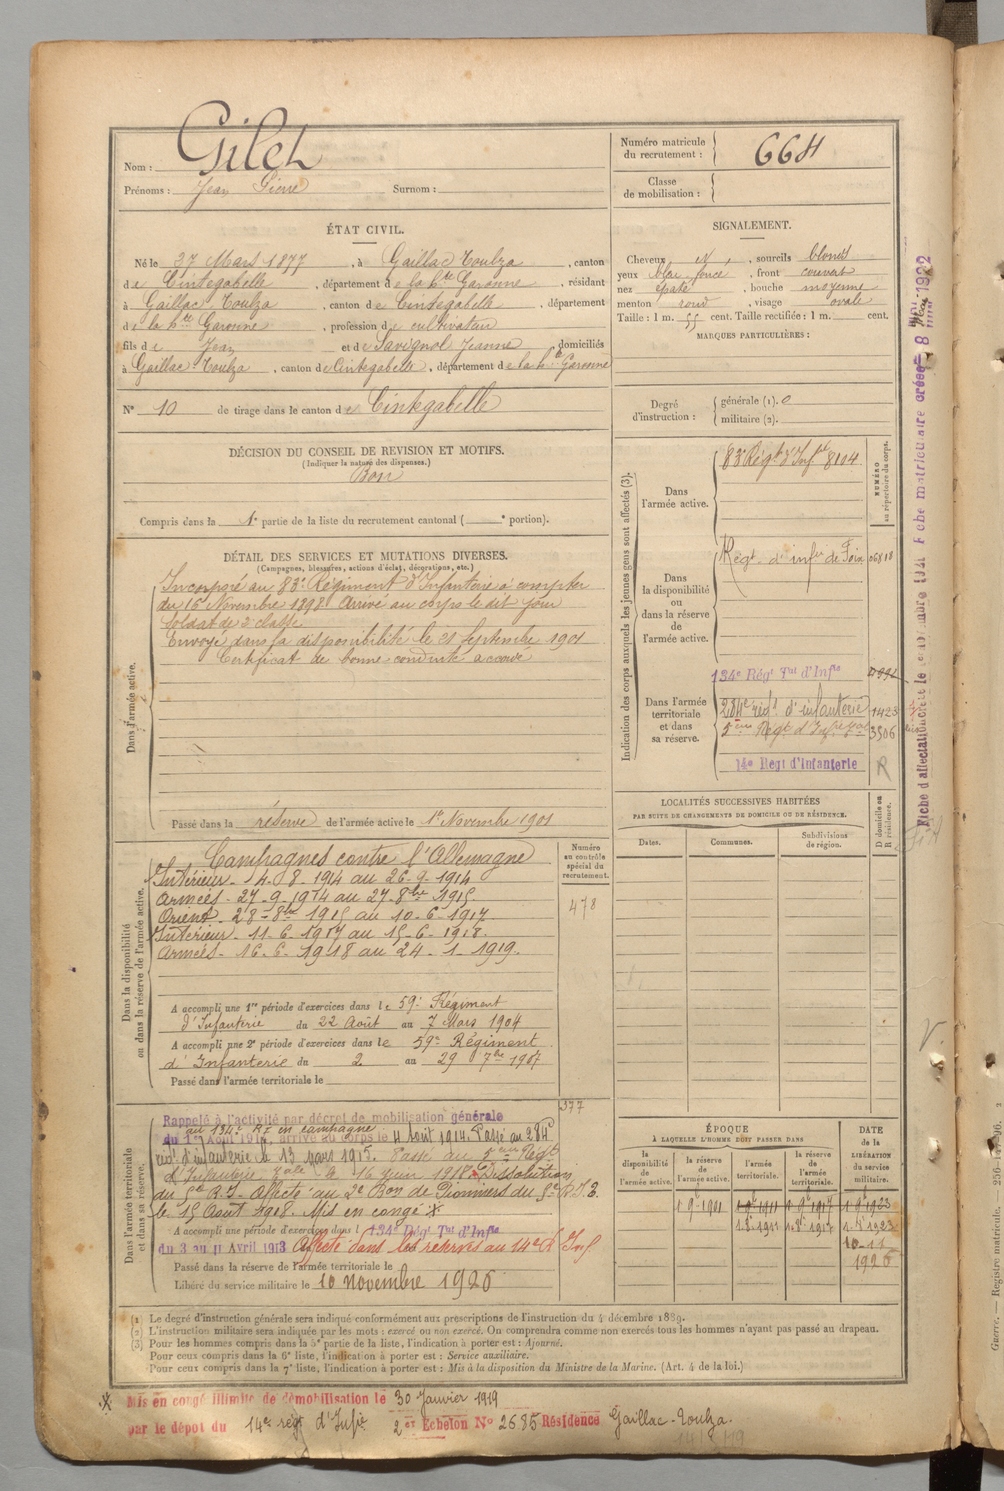 Nom : Gilet
Prénoms : Jean Pierre Surnom :
Numéro matricule du recrutement : 664
Classe de mobilisation :
ÉTAT CIVIL.
Né le 27 Mars 1877, à Gaillac Toulza, canton
de Cintegabelle, département de la hte Garonne, résidant
à Gaillac Toulza, canton de Cintegabelle, département
de la hte Garonne, profession de cultivateur
fils de Jean et de Savignol Jeanne, domiciliés
à Gaillac-Toulza, canton de Cintegabelle, département de la hte Garonne
N° 10 de tirage dans le canton de Cintegabelle
SIGNALEMENT.
Cheveux , sourcils blonds
yeux bleu foncé, front couvert
nez épaté, bouche moyenne
menton rond, visage ovale
Taille : 1 m. 55 cent. Taille rectifiée : 1 m. cent.
MARQUES PARTICULIÈRES :
Degré d'instruction : générale (1). 0
militaire (2).
DÉCISION DU CONSEIL DE REVISION ET MOTIFS.
(Indiquer la nature des dispenses.)
Bon
Compris dans la 1e partie de la liste du recrutement cantonal ( e portion).
DÉTAIL DES SERVICES ET MUTATIONS DIVERSES.
(Campagnes, blessures, actions d'éclat, décorations, etc.)
Dans l'armée active.
Incorporé au 83e Régiment d'Infanterie à compter
du 16 Novembre 1898 Arrivé au corps le dit jour
Soldat de 2e classe
Envoyé dans la disponibilité le 21 Septembre 1901
Certificat de bonne conduite accordé
Passé dans la réserve de l'armée active le 1er Novembre 1901
Indication des corps auxquels les jeunes gens sont affectés (3).
NUMÉRO au répertoire du corps.
Dans l'armée active.
83e Régt d'Infie 8104
Dans la disponibilité ou dans la réserve de l'armée active.
Régt d'infie de Foix 06818
Dans l'armée territoriale et dans sa réserve.
134e Régt Tal d'Infie
284e régt d'infanterie 1423
5ème Régt d'Infie 3506
14e Régt d'Infanterie R
LOCALITÉS SUCCESSIVES HABITÉES
PAR SUITE DE CHANGEMENTS DE DOMICILE OU DE RÉSIDENCE.
Dates. Communes. Subdivisions de région. D domicile ou R résidence.
Dans la disponibilité ou dans la réserve de l'armée active.
Numéro au contrôle spécial du recrutement.
478
Campagnes contre l'Allemagne
Intérieur - 14. 8. 1914 au 26-9-1914
Armées - 27-9-1914 au 27-8bre 1915
Orient - 28-8bre 1915 au 10-6-1917
Intérieur - 11-6-1917 au 15-6-1918.
Armées - 16-6-1918 au 24-1-1919.
A accompli une 1re période d'exercices dans le 59e Régiment
d'Infanterie du 22 Août au 7 Mars 1904
A accompli une 2e période d'exercices dans le 59e Régiment
d'Infanterie du 2 au 29 7bre 1907
Passé dans l'armée territoriale le
Dans l'armée territoriale et dans sa réserve.
377
Rappelé à l'activité par décret de mobilisation générale
au 134e R.I en campagne
du 1er Août 1914, arrivé au corps le 4 Août 1914. Passé au 284e
régt d'infanterie le 13 mars 1915. Passé au 5ème Régt
d'Infanterie le 16 juin 1918. Dissolution
du 5e R.I. Affecté au 2e Bon de Pionniers du 5e R.I.T.
le 15 Août 1918. Mis en congé X
A accompli une période d'exercices dans l 134e Régt Tal d'Infie
du 3 au 11 Avril 1913 Affecté dans les réserves au 14e R Inf
Passé dans la réserve de l'armée territoriale le
Libéré du service militaire le 10 novembre 1926
ÉPOQUE
À LAQUELLE L'HOMME DOIT PASSER DANS
DATE de la LIBÉRATION du service militaire.
la disponibilité de l'armée active. la réserve de l'armée active. l'armée territoriale. la réserve de l'armée territoriale.
1 9e 1901 1 9e 1911 1 9e 1917 1 9e 1923
10-11
1926
(1) Le degré d'instruction générale sera indiqué conformément aux prescriptions de l'instruction du 4 décembre 1889.
(2) L'instruction militaire sera indiquée par les mots : exercé ou non exercé. On comprendra comme non exercés tous les hommes n'ayant pas passé au drapeau.
(3) Pour les hommes compris dans la 5e partie de la liste, l'indication à porter est : Ajourné.
Pour ceux compris dans la 6e liste, l'indication à porter est : Service auxiliaire.
Pour ceux compris dans la 7e liste, l'indication à porter est : Mis à la disposition du Ministre de la Marine. (Art. 4 de la loi.)
X Mis en congé illimité de démobilisation le 30 Janvier 1919
par le dépot du 14e régt d'Infie 2e Echelon N° 2685 Résidence Gaillac-Toulza.
Guerre. — Registre matricule.